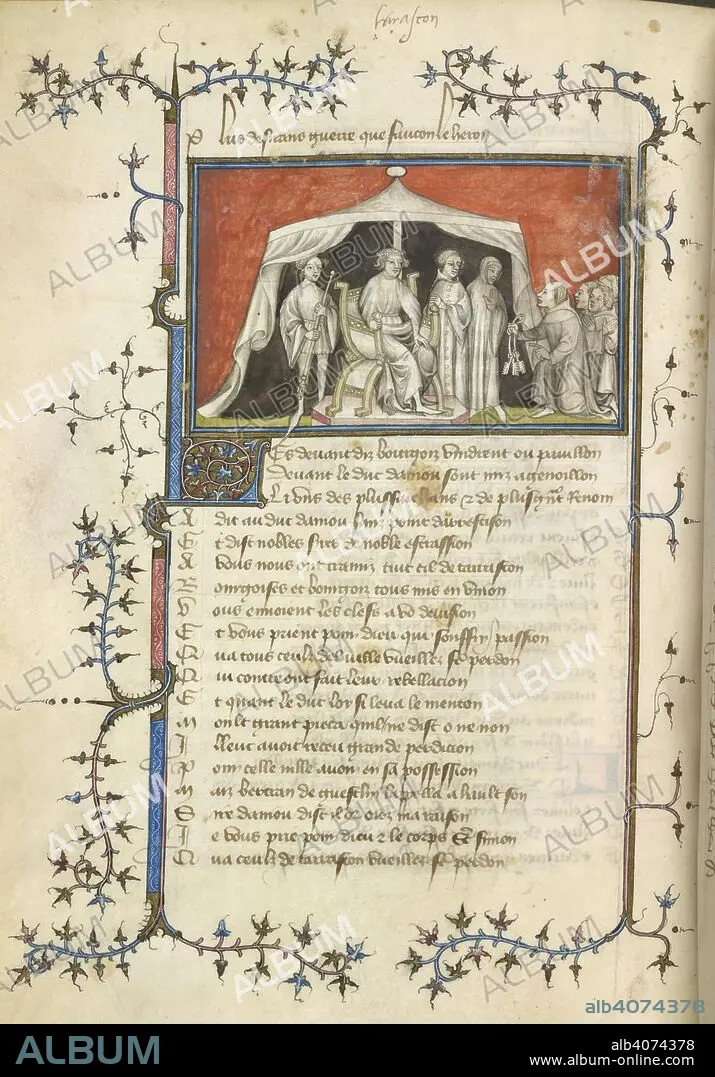 tarascon
Plus desirans guerre que faucon le heron
Les devant diz bourgoiz vindrent ou pavillon
Devant le duc danjou sont mis a genoillon
Li uns des plus sachans & de plus grant renom
A dit au duc danjou
Et dist nobles sires de noble estrassion
A vous nous ont tramis tuit cil de tarrascon
Bourgoises et bourgois tous mis en union
Vous envoient les clefs a vo devision
Et vous prient pour dieu qui souffry passion
Qua tous ceulx de la ville vueilliez fe perdon
Qui contre ont fait leur rebellacion
Et quant le duc loy si leva le menton
Moult grant piece quil ne dist o ne non
Il leur avoit receu grande perdicion
Pour celle ville avoir en sa possession
Maiz bertran de guesclin lapella a hault son
Sire danjou dist il or oiez ma raison
Je vous prie pour dieu & le corps St simon
Qua ceulx de tarrascon vueilliez fe perdon
ALBUM
alb4074378
ALBUM
alb4074378
www.album-online.com